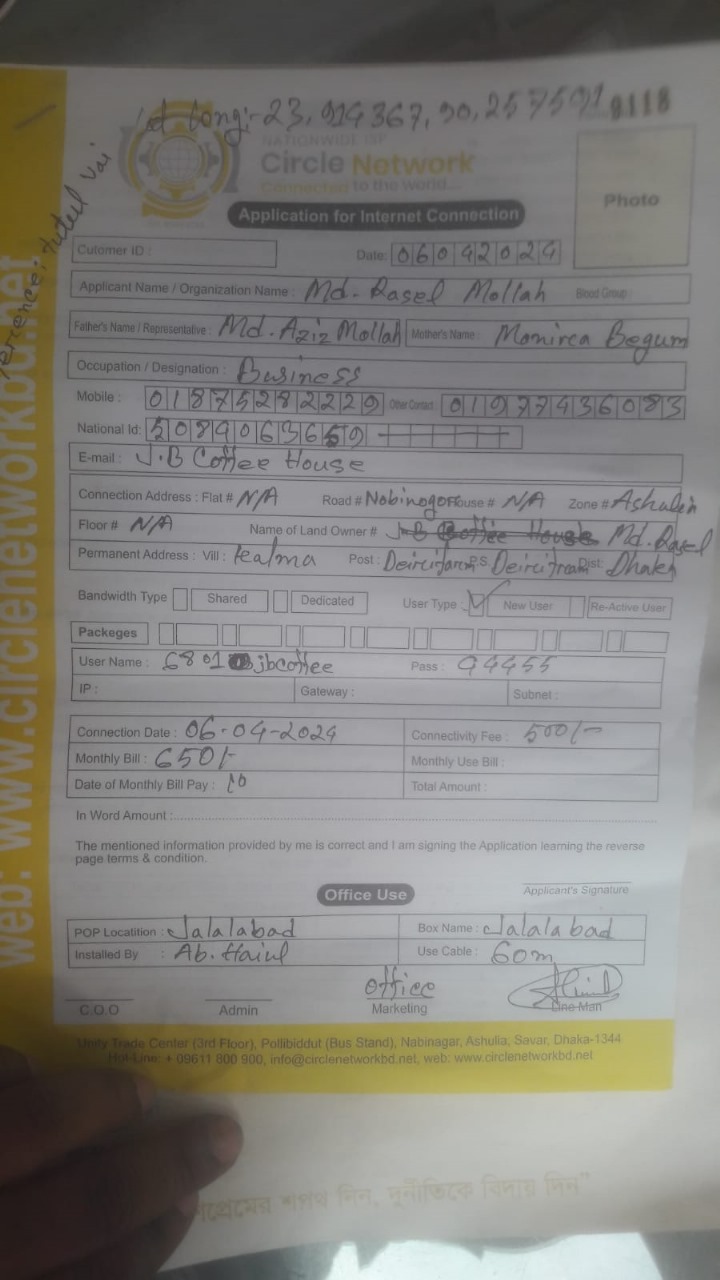 Lat Long:- 23.914367, 90.257591 9118
Reference: Tutul Vai
NATIONWIDE ISP
Circle Network
Connected to the world...
Application for Internet Connection
Photo
Cutomer ID :
Date: 06042024
Applicant Name / Organization Name : Md. Rasel Mollah Blood Group
Father's Name / Representative : Md. Aziz Mollah Mother's Name : Monira Begum
Occupation / Designation : Business
Mobile : 01875282229 Other Contact: 01977436083
National Id: 5089063659
E-mail : J.B Coffee House
Connection Address : Flat # N/A Road # Nobinogor House # N/A Zone # Ashulia
Floor # N/A Name of Land Owner # J.B Coffee House Md. Rasel
Permanent Address : Vill : Post : P.S. Dist: Dhaka
Bandwidth Type Shared Dedicated User Type : New User Re-Active User
Packeges
User Name : 6801 jbcoffee Pass : 94455
IP : Gateway : Subnet :
Connection Date : 06-04-2024 Connectivity Fee : 500/-
Monthly Bill : 650/- Monthly Use Bill :
Date of Monthly Bill Pay : 10 Total Amount :
In Word Amount :
The mentioned information provided by me is correct and I am signing the Application learning the reverse
page terms & condition.
Applicant's Signature
Office Use
POP Locatition : Jalalabad Box Name : Jalalabad
Installed By : Ab. Use Cable : 60m
office
C.O.O Admin Marketing Line Man
Unity Trade Center (3rd Floor), Pollibiddut (Bus Stand), Nabinagar, Ashulia, Savar, Dhaka-1344
Hot-Line: + 09611 800 900, info@circlenetworkbd.net, web: www.circlenetworkbd.net
web: www.circlenetworkbd.net
শপথ নিন, দুর্নীতিকে বিদায় দিন"